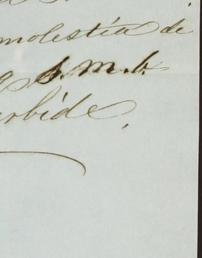 molestia de
s.m.b.
rbide.